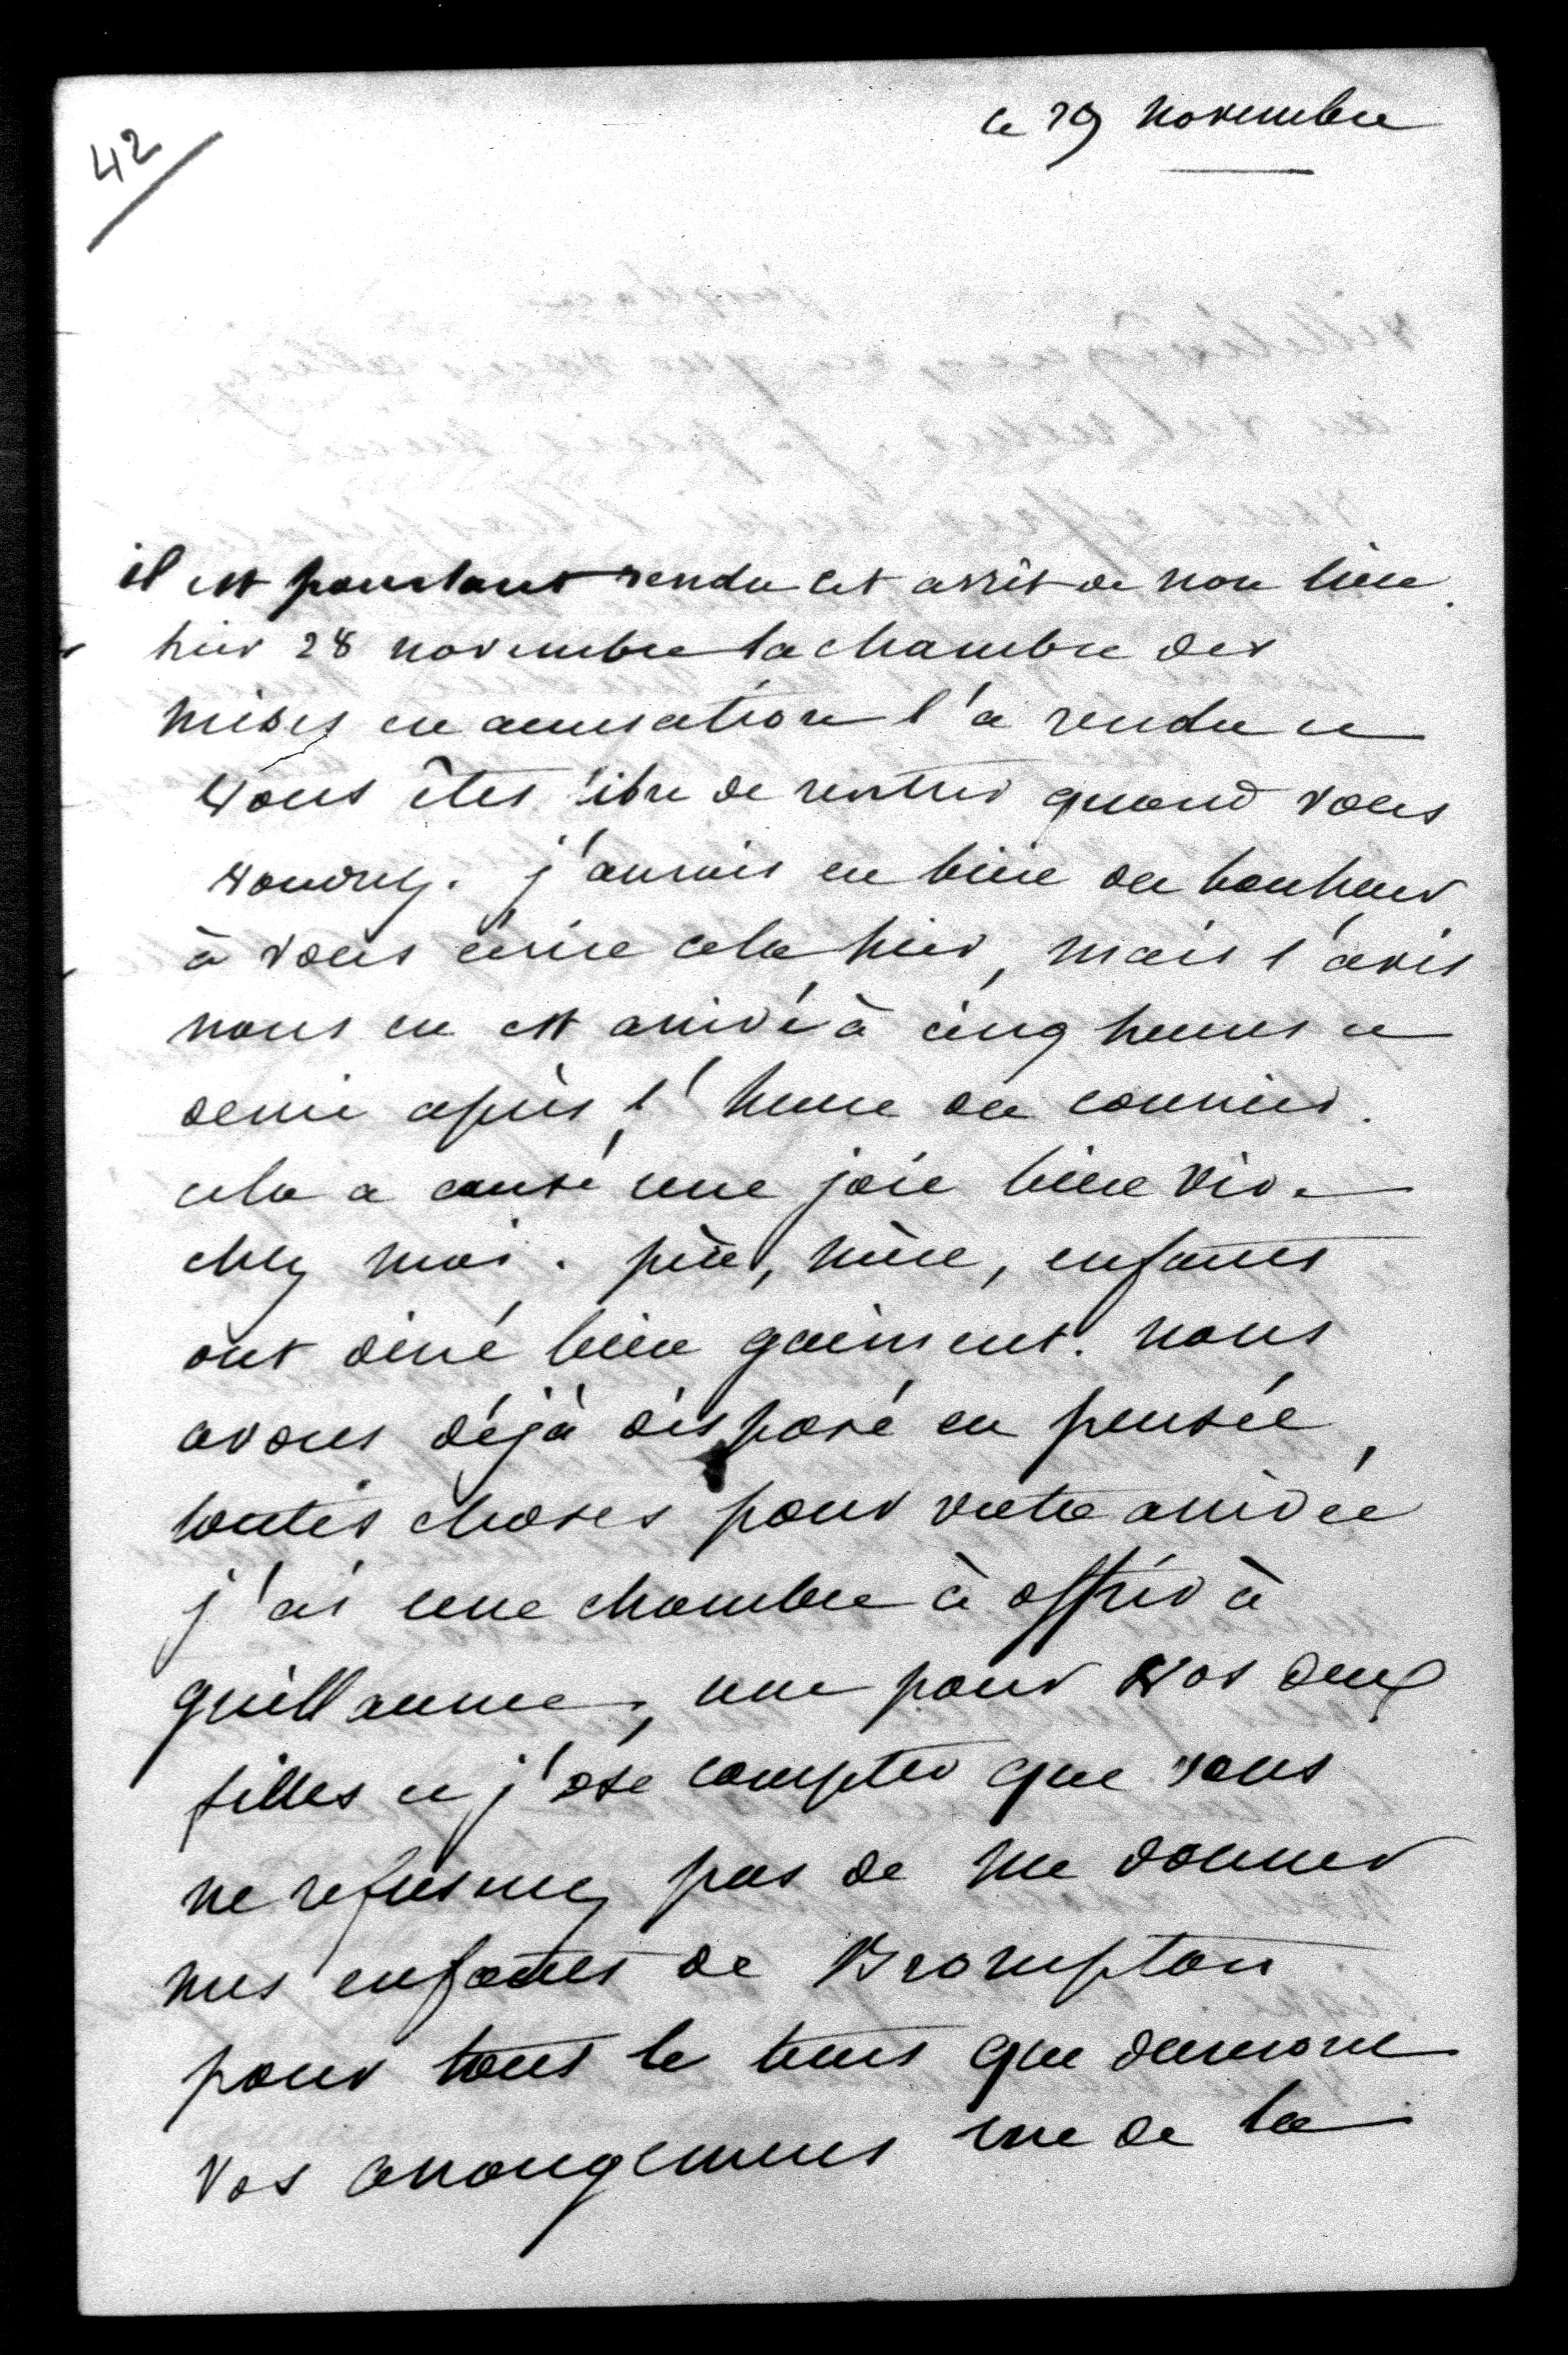 42
le 29 novembre
il est pourtant rendu cet arrêt de non lieu.
hier 28 novembre la chambre des
mises en accusation l'a rendu et
vous êtes libre de rentrer quand vous
voudrez. j'aurais eu bien du bonheur
à vous écrire cela hier, mais l'avis
nous en est arrivé à cinq heures et
demie après l'heure du courrier.
cela a causé une joie bien vive
chez moi. père, mère, enfants
ont diné bien gaiment. nous
avons déjà disposé en pensée,
toutes choses pour votre arrivée
j'ai une chambre à offrir à
guillaume, une pour vos deux
filles et j'ose compter que vous
ne refuserez pas de me donner
mes enfants de Brompton
pour tout le tems que dureront
vos arrangemens rue de la